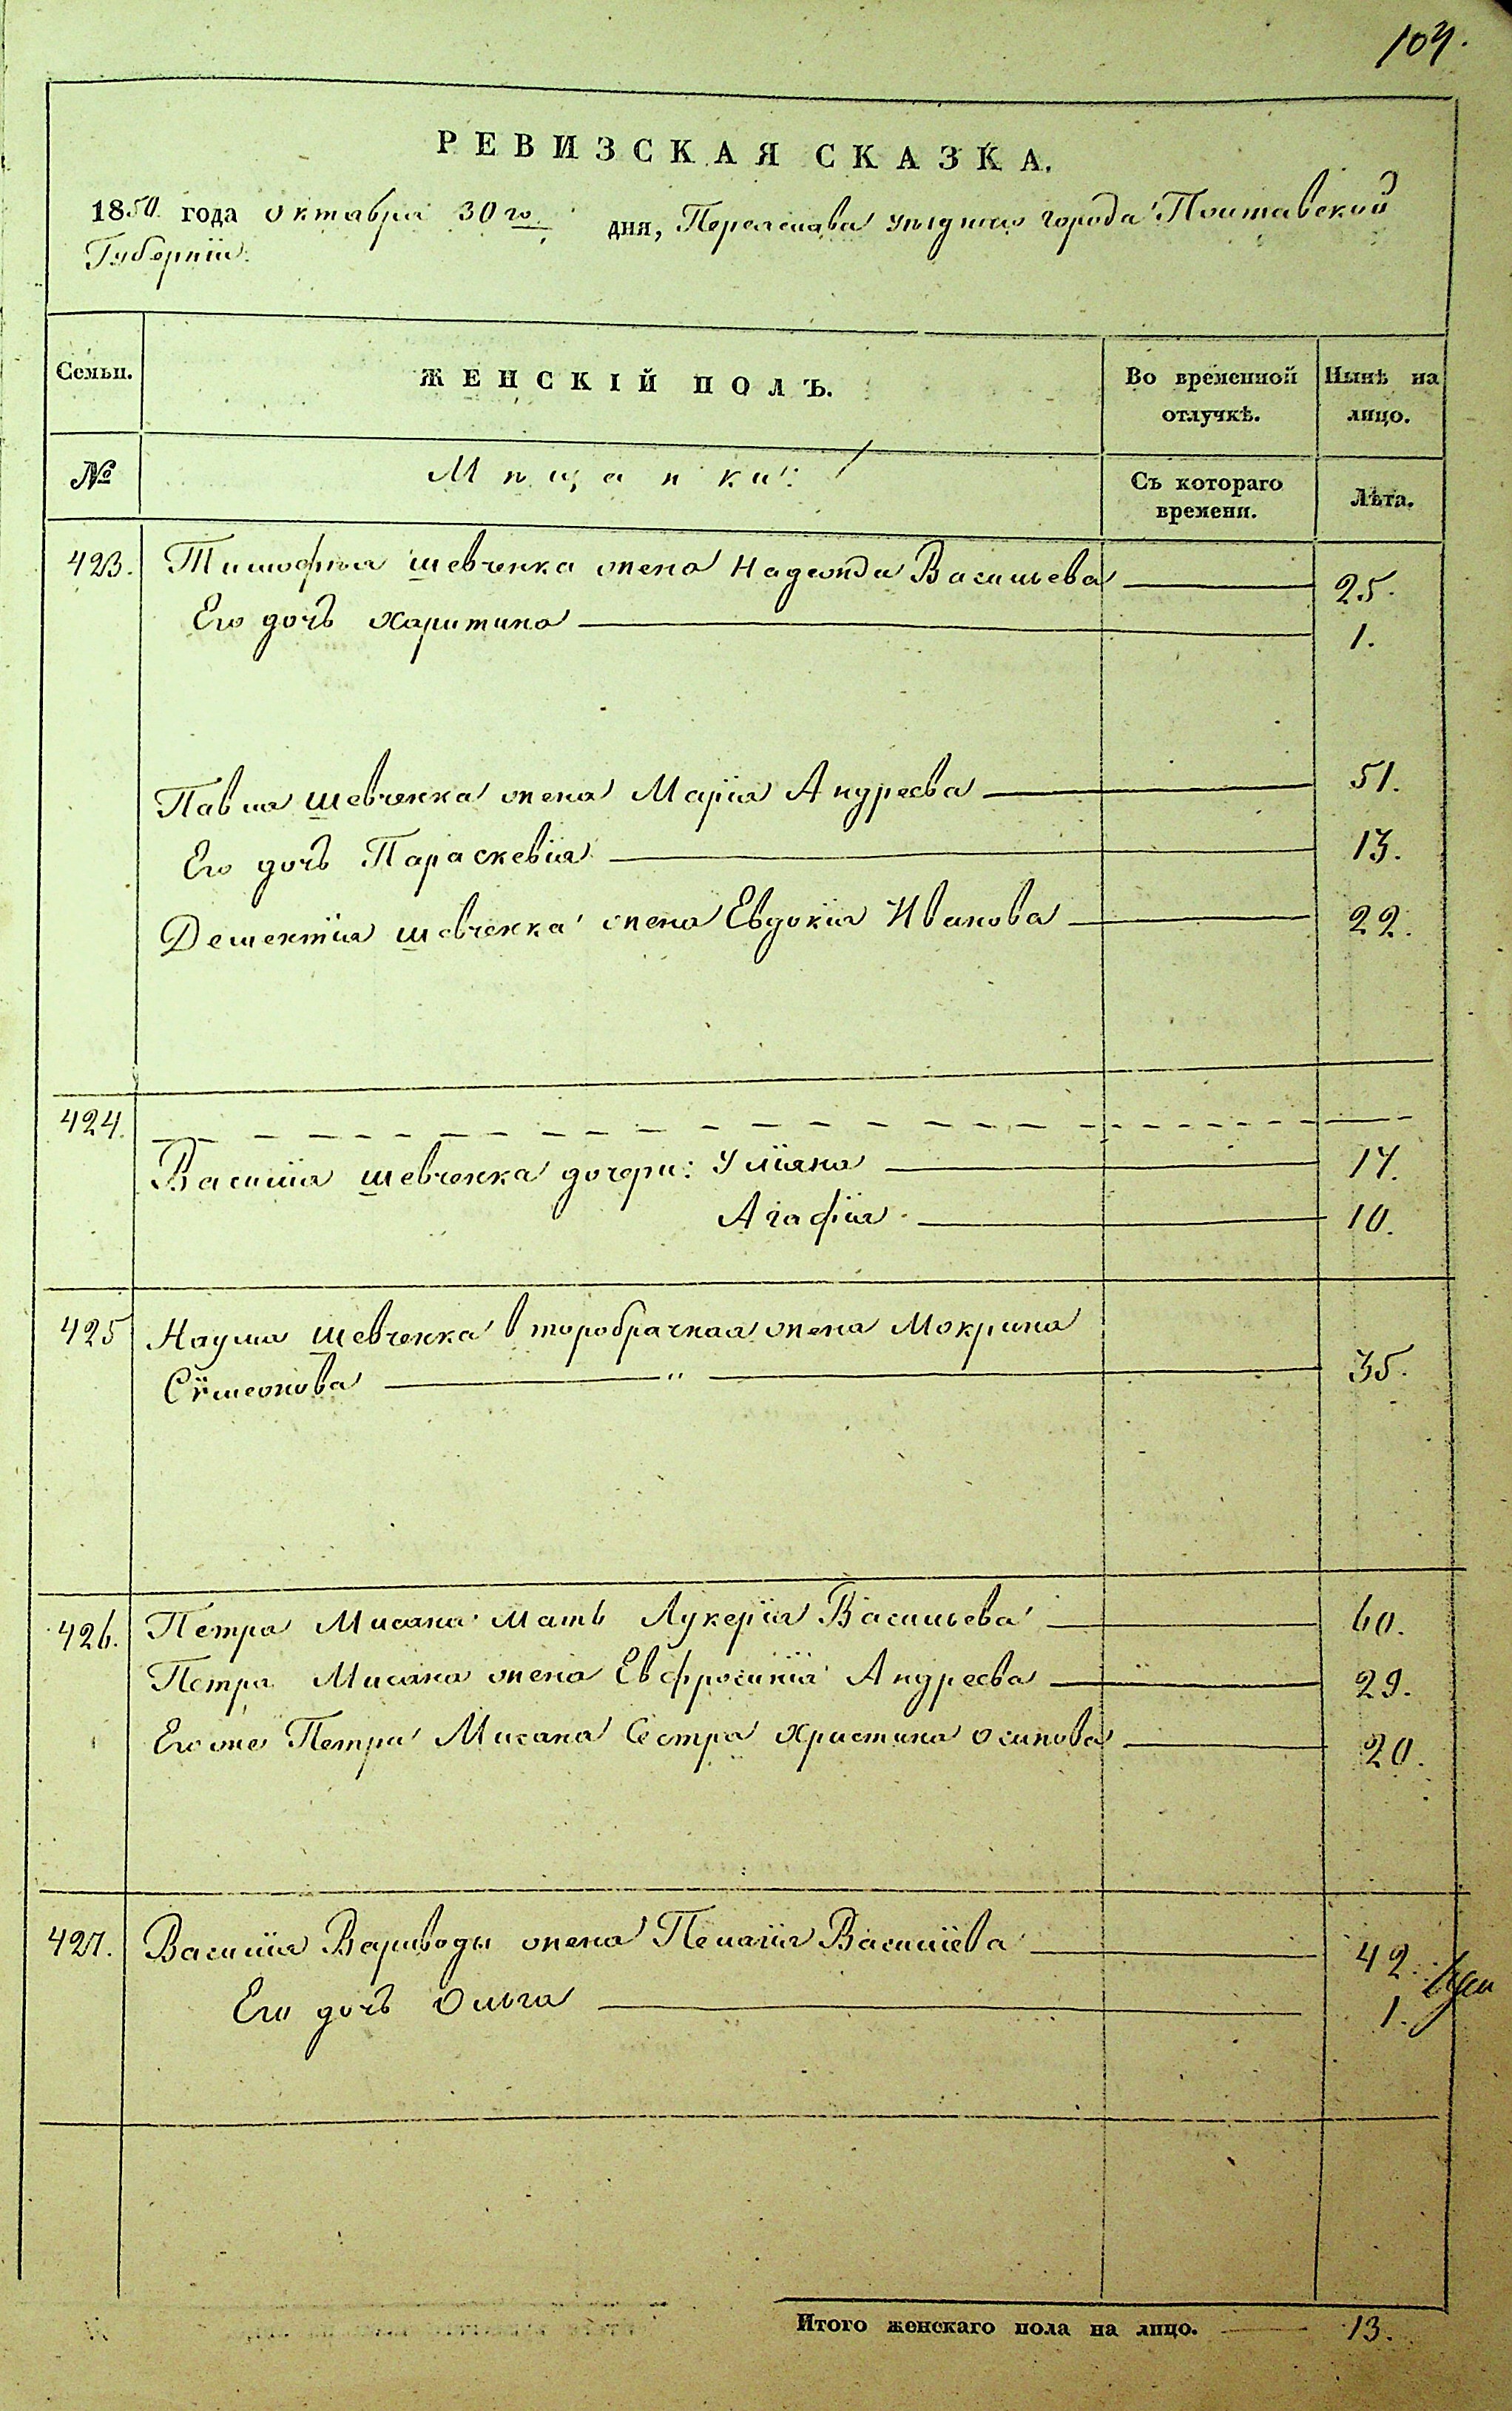 104.
РЕВИЗСКАЯ СКАЗКА.
1850 года октября 30го дня, Переяслава уѣзднаго города Полтавской
Губерніи.
Семьи.
ЖЕНСКІЙ ПОЛЪ.
Во временной отлучкѣ.
Нынѣ на лицо.
№
Мѣщанки:
Съ котораго времени.
Лѣта.
423. Тимофѣя Шевченка жена Надежда Васильева 25.
Его дочь Харитина 1.
Павла Шевченка жена Марія Андреева 51.
Его дочь Параскевія 13.
Дементія Шевченка жена Евдокія Иванова 22.
424.
Василія Шевченка дочери: Уліяна 17.
Агафія 10.
425 Наума Шевченка второбрачная жена Мокрина
Сѵмеонова " 35.
426. Петра Мисана мать Лукерія Васильева 60.
Петра Мисана жена Евфросинія Андреева 29.
Его же Петра Мисана Сестра Христина Осипова 20.
427. Василія Вариводы жена Пелагія Василіева 42.
Его дочь Ольга 1.
Итого женскаго пола на лицо. 13.